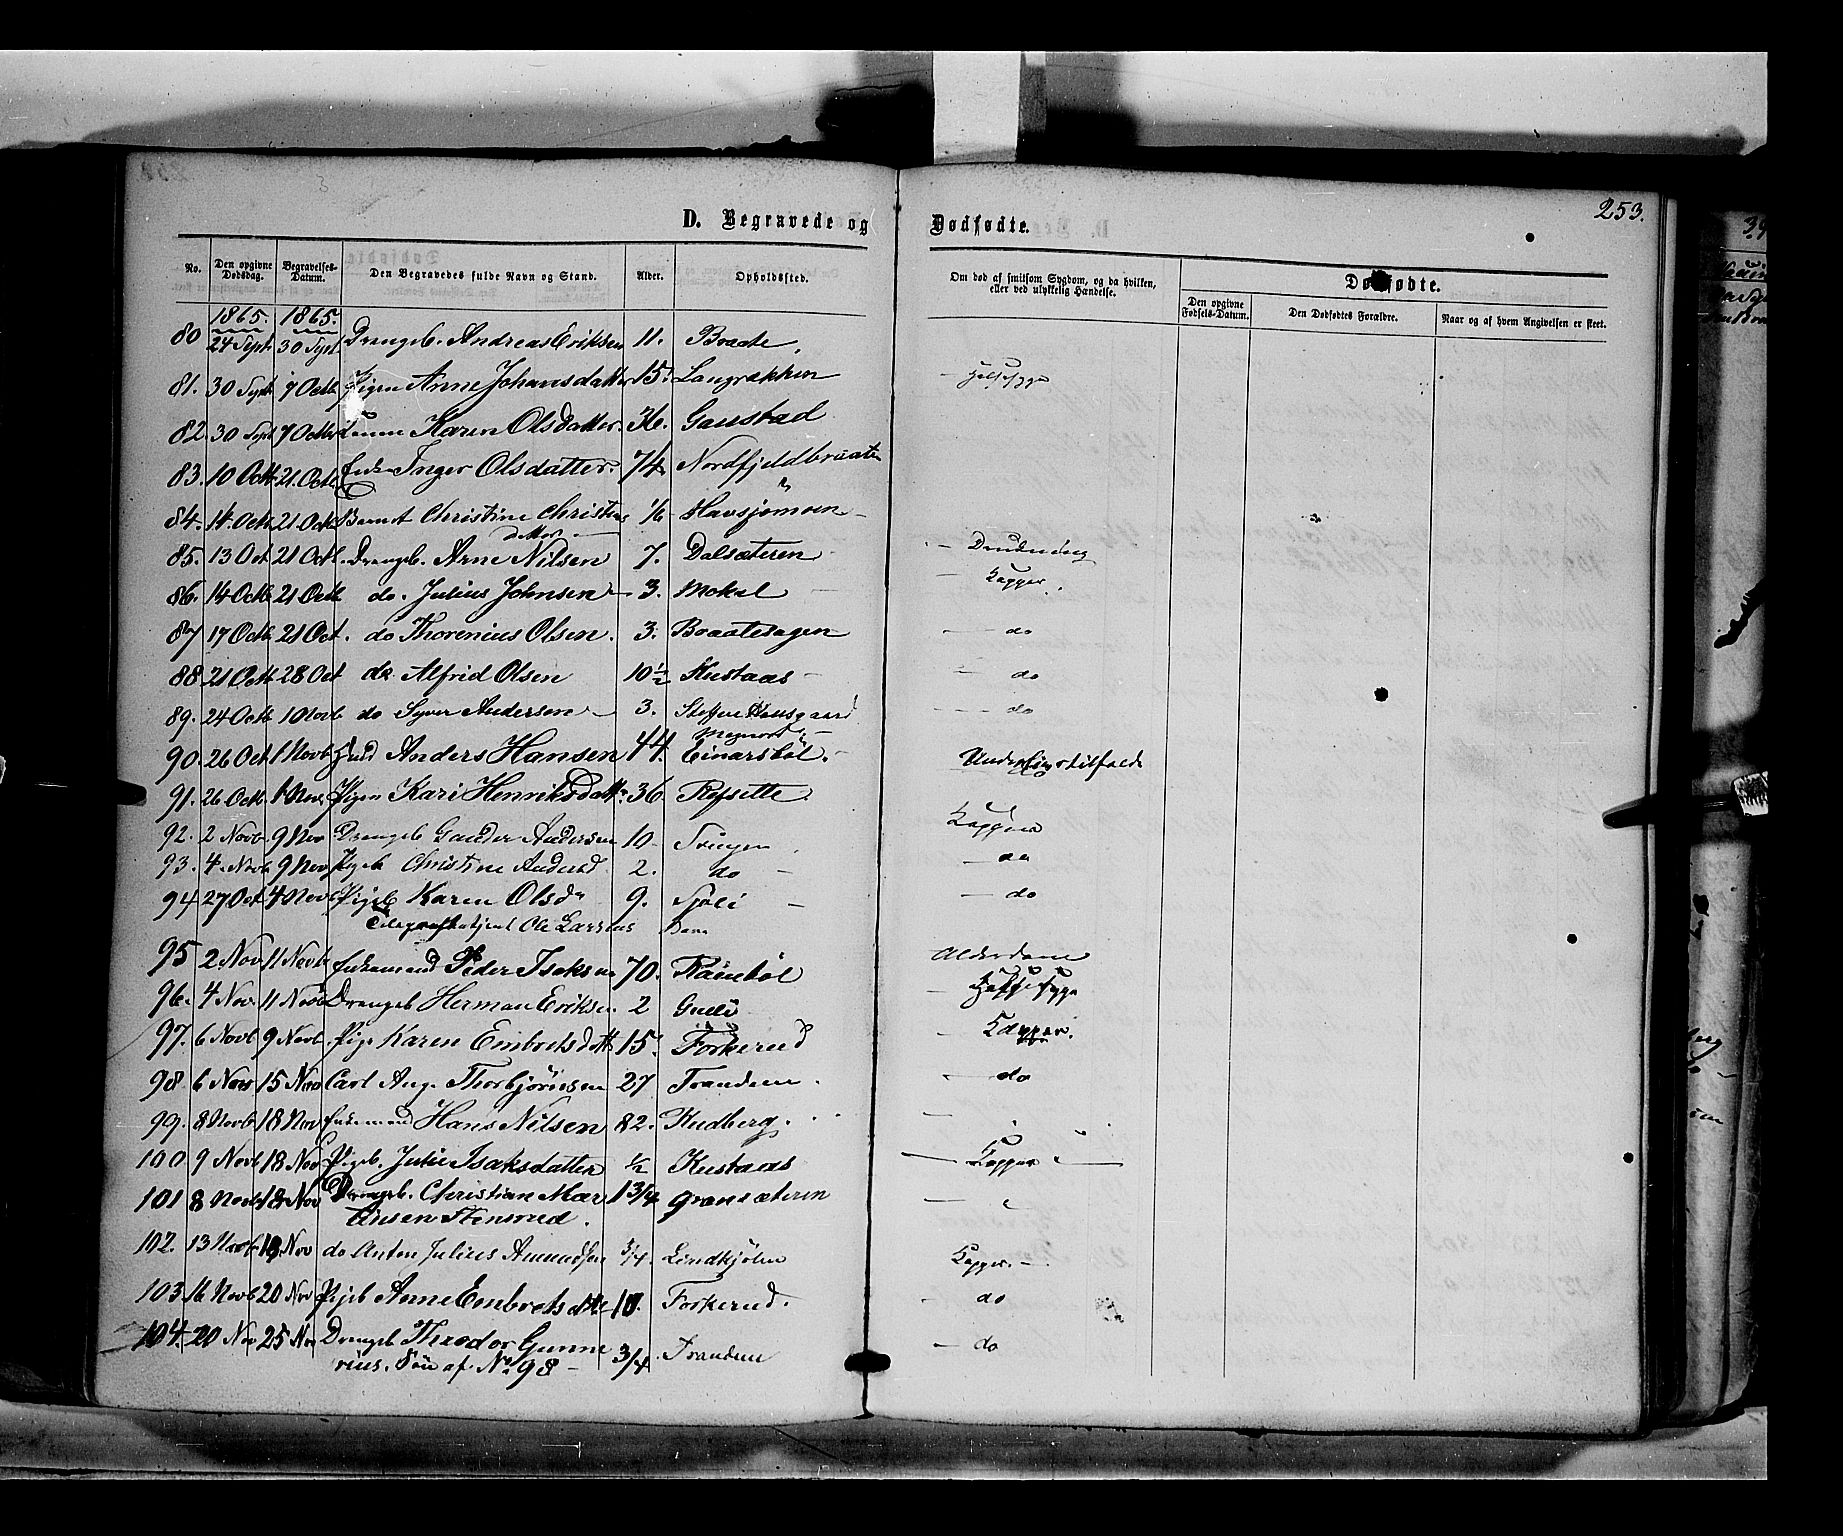 253.
D. Begravede og Dødfødte.
No. Den opgivne Dødsdag. Begravelses-Datum. Den Begravedes fulde Navn og Stand. Alder. Opholdssted. Om død af smitsom Sygdom, og da hvilken, eller ved ulykkelig Hændelse. Dødfødte.
Den opgivne Fødsels-Datum. Den Dødfødtes Forældre. Naar og af hvem Angivelsen er skeet.
1865. 1865.
80 24 Sept. 30 Sept. Drengeb. Andreas Eriksen 11. Braate
81. 30 Sept 7 Octb Pigen Anne Johansdatter 15. Langrækken
82. 30 Sept 7 Octbr Karen Olsdatter. 36. Gaustad
83. 10 Octb. 21. Octb Enken Inger Olsdatter. 74. Nordfjeldbraaten
84. 14. Octb 21 Octb Barnet Christine Christians 1/6 Havsjømoen
datter
85. 13 Oct 21 Octb. Drengeb. Arne Nilsen 7. Dalsæteren
86. 14 Octb 21 Octb do. Julius Johnsen 3. Mokal — Kopper
87 17 Octb 21 Oct. do Thorenius Olsen. 3. Braatehagen — do
88 21 Octb 28 Oct do Alfrid Olsen 10 1/2 Kustaas — do
89. 24 Octb 1 Novb do Syver Andersen 3. Steffen Hallsgaard — do
90. 26 Oct 1 Novb Anders Hansen 44. Einarsbøl. Underlivstilfælde
91. 26 Octb 1 Nov. Pigen Kari Henriksdatter 36. Refsette
92. 2 Novb. 9 Nov Drengeb Gander Andersen 10 Kopper
93. 4. Novb 9 Nov Pigeb Christine Andersd. 2. do — do
94 27 Oct 4 Novb Pigeb Karen Olsdr 9. Sjøli — do
Ole Larsens Barn
95 2 Nov 11 Novb Peder Isaksen 70. Alderdom
96. 4 Nov. 11 Novb Drengeb Herman Eriksen 2
97. 6 Novb 9 Novb. Pige Karen Embretsdtt 15. Forkerud — Kopper.
98. 6 Nov 15 Nov Carl Aug. Thorbjørnsen 27 Trandem. — do
99. 8 Novb 18 Nov Hans Nilsen 82. Rudberg.
100 9 Novb 18 Nov Pigeb. Julie Isaksdatter 1/2 Kustaas — Kopper
101 8 Novb 18 Nov Drengeb. Christian Mar 1 3/4 Gransæteren
tinsen Stensrud.
102. 13 Novb 18 Nov do Anton Julius Amundsen 3/4 Lindkjølen Kopper.
103 16 Novb 20 Nov Pigeb Anne Embretsdtt 10. Forkerud. — do
104. 20 Nov 25 Nov Drengeb Theodor Gunne 3/4 Trandem — do
rius. Søn af No 98